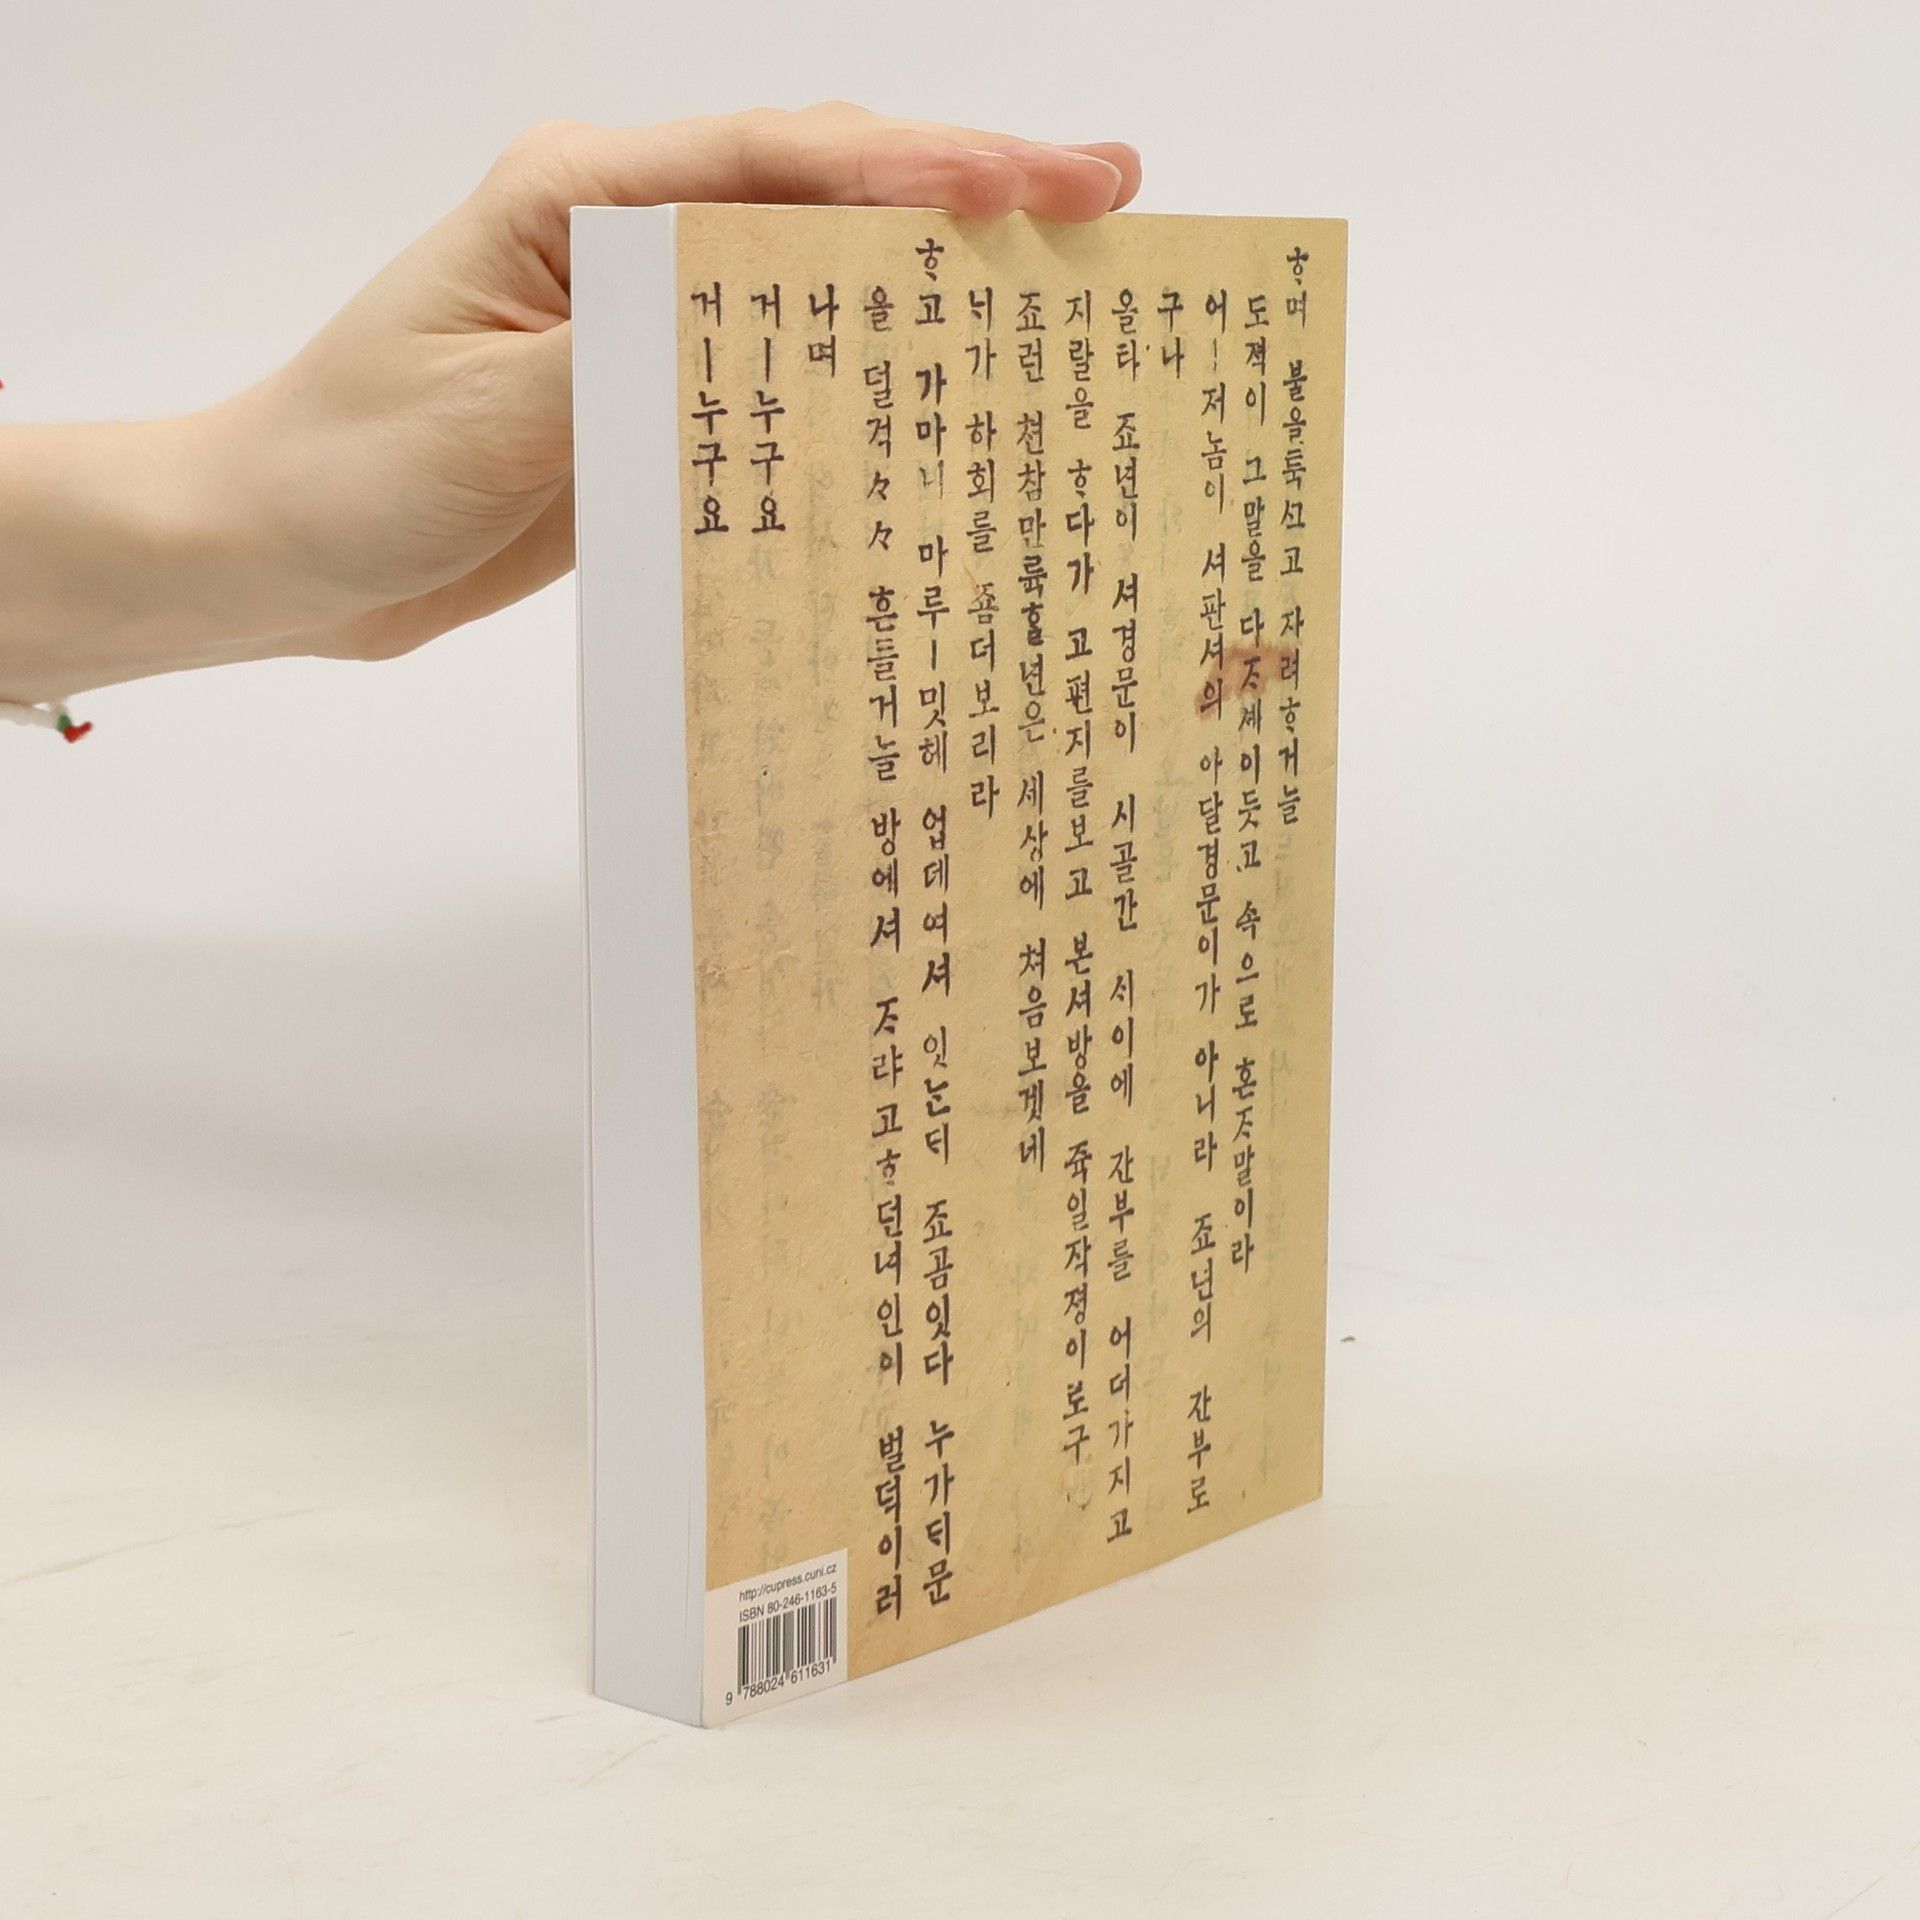 ᄒᆞ며 불을툭ᄭᅳ고 자려ᄒᆞ거늘
도젹이 그말을 다ᄌᆞ셰이듯고 속으로 혼ᄌᆞ말이라
어ㅣ저놈이 셔판셔의 아달경문이가 아니라 죠년의 간부로
구나
올타 죠년이 셔경문이 시골간 ᄉᆞ이에 간부를 어더가지고
지랄을 ᄒᆞ다가 고편지를보고 본셔방을 쥭일작졍이로구
죠런 쳔참만륙ᄒᆞᆯ년은 세상에 쳐음보겟네
ᄂᆡ가 하회를 죰더보리라
ᄒᆞ고 가마니 마루ㅣ밋헤 업데여셔 잇ᄂᆞᆫᄃᆡ 죠곰잇다 누가ᄃᆡ문
을 덜걱々々 흔들거늘 방에셔 ᄌᆞ랴고ᄒᆞ던녀인이 벌덕이러
나며
거ㅣ누구요
거ㅣ누구요
http://cupress.cuni.cz
ISBN 80-246-1163-5
9 788024 611631